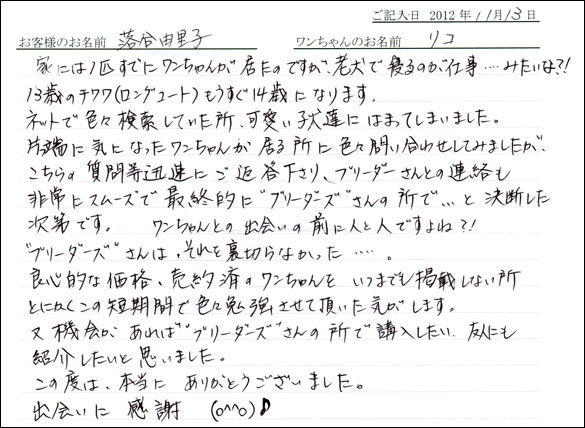 ご記入日 2012 年 11月 13日
お客様のお名前 落合由里子 ワンちゃんのお名前 リコ
家には1匹すでにワンちゃんが居たのですが、老犬で寝るのが仕事….みたいな?!
13歳のチワワ(ロングコート)もうすぐ14歳になります。
ネットで色々検索していた所、可愛い子犬達にはまってしまいました。
片端に気になったワンちゃんが居る所に色々問い合わせしてみましたが、
こちらの質問等迅速にご返答下さり、ブリーダーさんとの連絡も
非常にスムーズで最終的に"ブリーダーズ"さんの所で…と決断した
次第です。 ワンちゃんとの出会いの前に人と人ですよね?!
"ブリーダーズ"さんは、それを裏切らなかった‥‥。
良心的な価格、売約済のワンちゃんを いつまでも掲載しない所
とにかくこの短期間で色々勉強させて頂いた気がします。
又機会があれば"ブリーダーズ"さんの所で購入したい、友人にも
紹介したいと思いました。
この度は、本当に ありがとうございました。
出会いに 感謝 (o^^o)♪